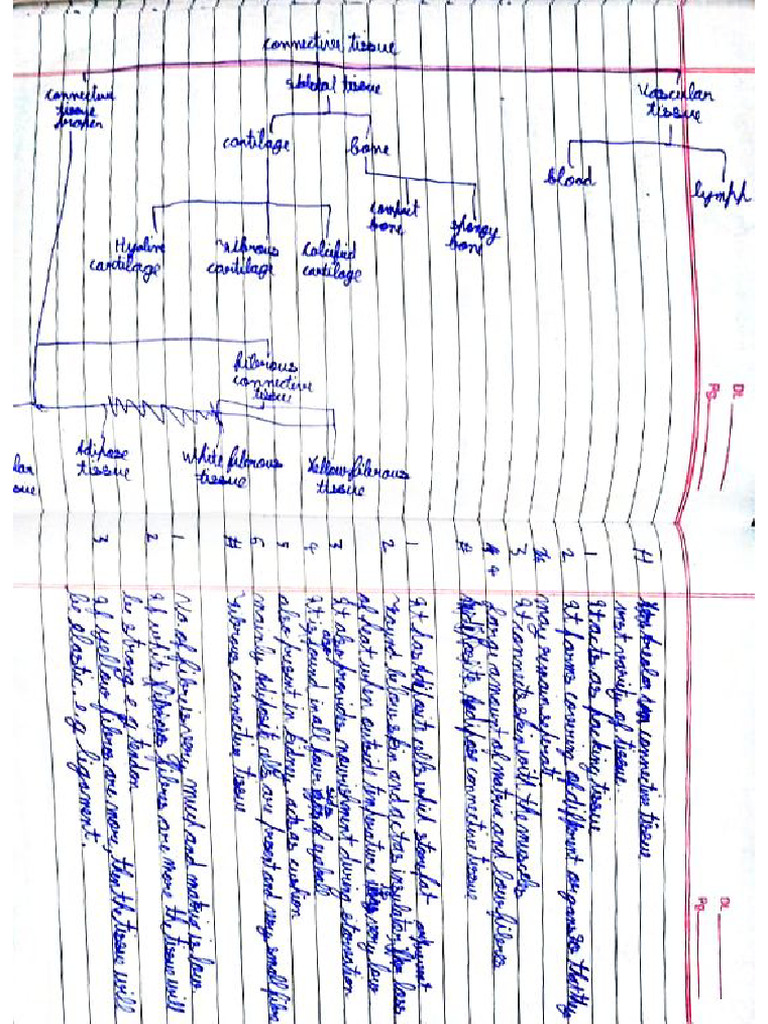 connective tissue
connective
tissue
proper
skeletal tissue
Vascular
tissue
cartilage
Bone
Blood
lymph
compact
bone
spongy
bone
Hyaline
cartilage
fibrous
cartilage
Calcified
cartilage
fibrous
connective
tissue
Adipose
tissue
White fibrous
tissue
Yellow fibrous
tissue
lar
sue
Dt.
Pg.
Dt.
Pg.
# connective tissue
most variety of tissue
1 It acts as packing tissue
2 It forms covering of different organs so that they
may remain
3 It connects skin with the muscles
4 large amount of matrix and low fibres
# Adipose connective tissue
1 It has adiposite cells which store fat
2 found below skin and act as insulator
of heat when outside temperature very low
3 It also provides nourishment during starvation
4 It is found in all of eyeball
5 also present in kidney acts as cushion
6 mainly Adiposite cells are present and very small fibre
# fibrous connective tissue
1 No of fibres is very much and matrix is low
2 If white fibres are more the tissue will
be strong e.g tendon
3 If yellow fibres are more, then the tissue will
be elastic e.g ligament.